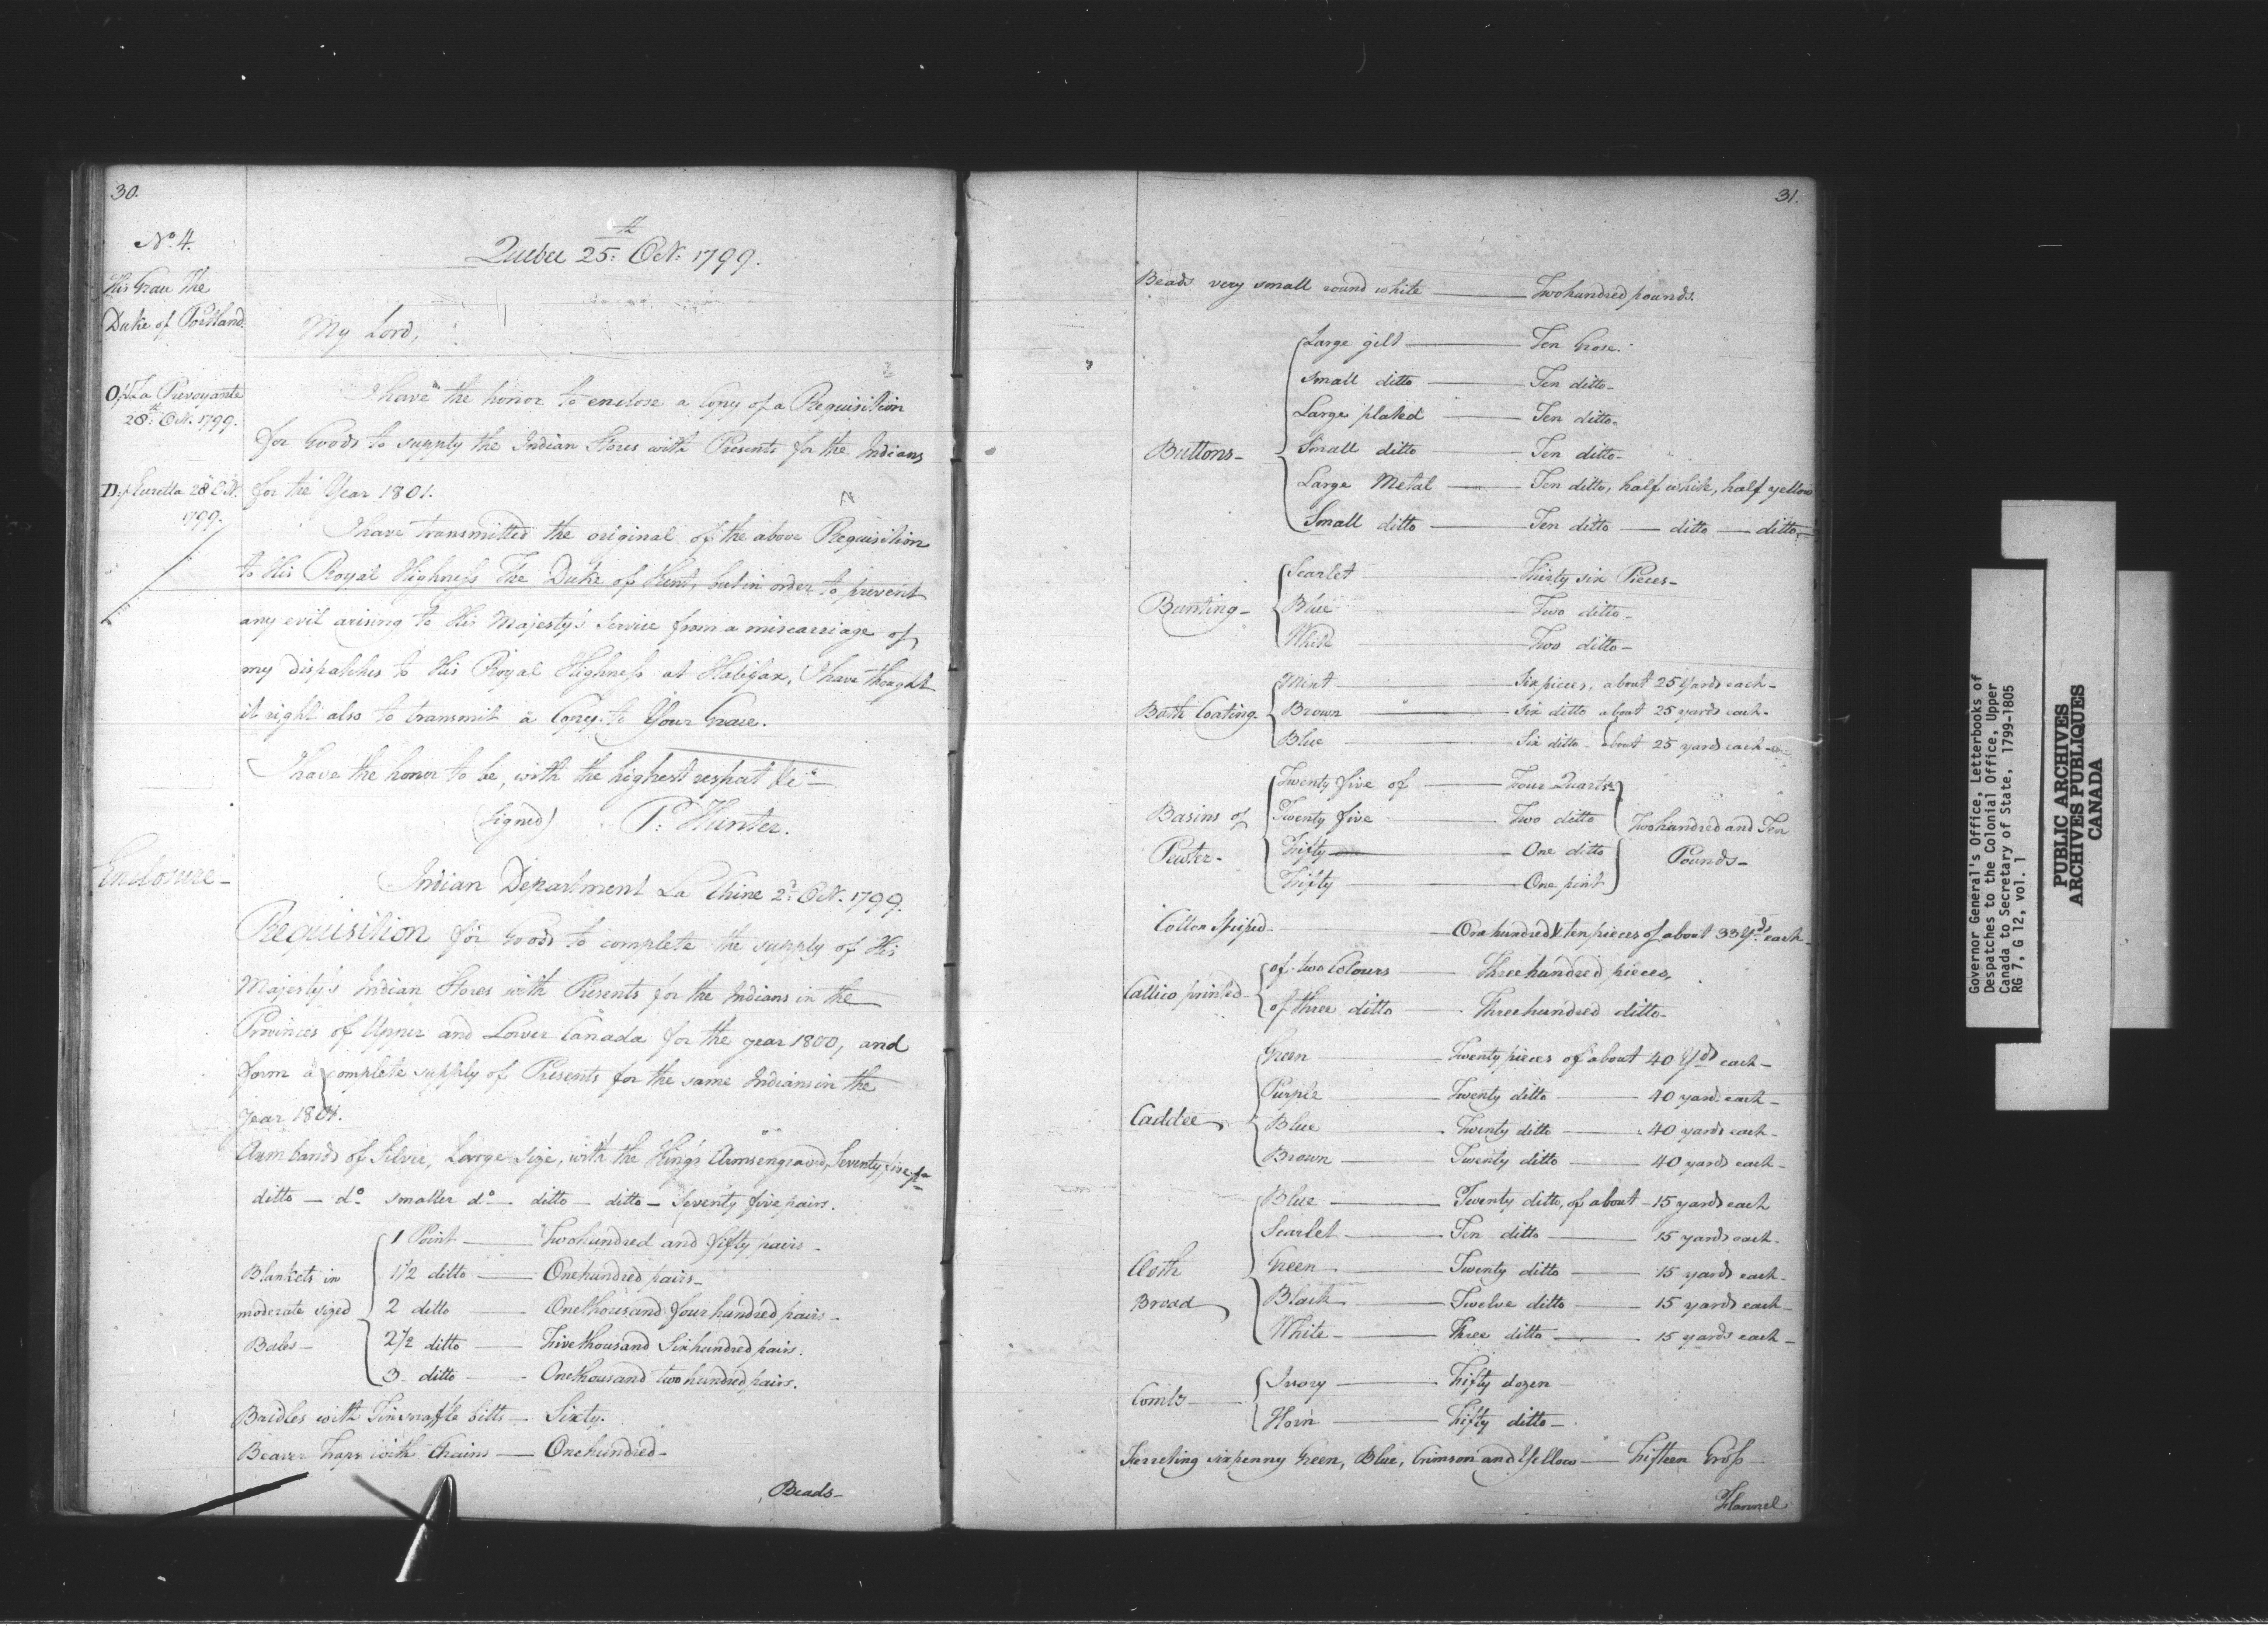 30.
No. 4.
Quebec 25th. Oct. 1799.
His Grace The
Duke of Portland.
My Lord,
Op La Prevoyante
28th. Oct. 1799.
I have the honor to enclose a Copy of a Requisition
for Goods to supply the Indian Stores with Presents for the Indians
Dp Euretta 28 Oct.
1799.
for the Year 1801.
I have transmitted the original of the above Requisition
to His Royal Highness The Duke of Kent, but in order to prevent
any evil arising to His Majesty's Service from a miscarriage of
my dispatches to His Royal Highness at Halifax, I have thought
it right also to transmit a Copy to Your Grace.
I have the honor to be, with the highest respect &c
(signed) P. Hunter.
Enclosure—
Indian Department La Chine 2d. Oct. 1799.
Requisition for Goods to complete the supply of His
Majesty's Indian Stores with Presents for the Indians in the
Provinces of Upper and Lower Canada for the year 1800, and
form a complete supply of Presents for the same Indians in the
year 1801.
Arm bands of Silver, Large size, with the King's Arms engraved, Seventy five prs
ditto — do. smaller do. — ditto — ditto — Seventy five pairs.
Blankets in moderate sized Bales—
1 Point — Two hundred and fifty pairs—
1 1/2 ditto — One hundred pairs—
2 ditto — One thousand four hundred pairs—
2 1/2 ditto — Five thousand Six hundred pairs.
3 ditto — One thousand two hundred pairs.
Bridles with Tin snaffle bitts — Sixty.
Beaver Traps with Chains — One hundred—
Beads—
31.
Beads very small round white — Two hundred pounds.
Buttons—
Large gilt — Ten Grose.
Small ditto — Ten ditto—
Large plated — Ten ditto.
Small ditto — Ten ditto—
Large Metal — Ten ditto, half white, half yellow
Small ditto — Ten ditto — ditto — ditto—
Bunting—
Scarlet — Thirty six Pieces—
Blue — Two ditto—
White — Two ditto—
Bath Coating—
Mixt — Six pieces, about 25 Yards each—
Brown — Six ditto about 25 yards each—
Blue — Six ditto — about 25 yards each—
Basins of Pewter—
Twenty five of — Four Quarts
Twenty five — Two ditto
Fifty — One ditto
Fifty — One pint
Two hundred and Ten Pounds—
Cotton Striped — One hundred & ten pieces of about 33 Yds. each—
Callico printed—
of two Colours — Three hundred pieces,
of three ditto — Three hundred ditto—
Caddee,
Green — Twenty pieces of about 40 Yds each—
Purple — Twenty ditto — 40 yards each—
Blue — Twenty ditto — 40 yards each—
Brown — Twenty ditto — 40 yards each—
Cloth Broad,
Blue — Twenty ditto, of about — 15 yards each
Scarlet — Ten ditto — 15 yards each—
Green — Twenty ditto — 15 yards each—
Black — Twelve ditto — 15 yards each—
White — Three ditto — 15 yards each—
Combs—
Ivory — Fifty dozen
Horn — Fifty ditto—
Ferreting sixpenny Green, Blue, Crimson and Yellow — Fifteen Gross
Flannel
Governor General's Office, Letterbooks of
Despatches to the Colonial Office, Upper
Canada to Secretary of State, 1799-1805
RG 7, G 12, vol. 1
PUBLIC ARCHIVES
ARCHIVES PUBLIQUES
CANADA